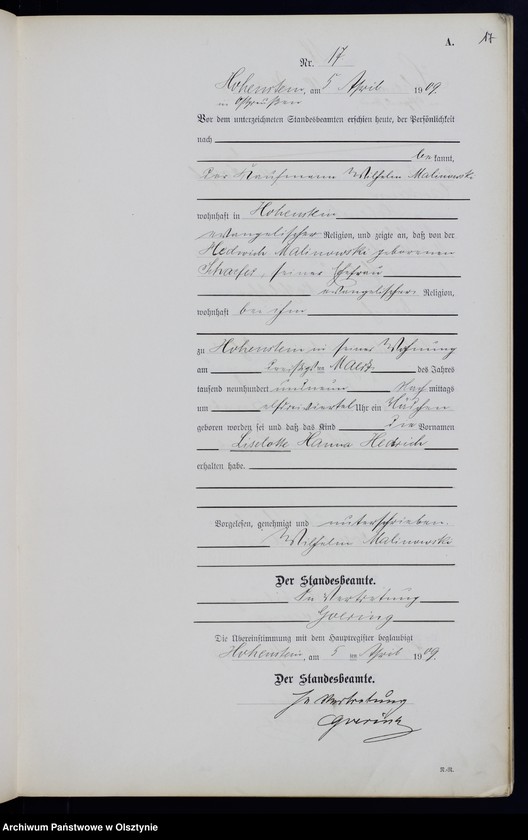 A.
17
Nr. 17
Hohenstein, am 5 April 1909.
in Ostpreußen
Vor dem unterzeichneten Standesbeamten erschien heute, der Persönlichkeit
nach
bekannt,
der Kaufmann Wilhelm Malinowski
wohnhaft in Hohenstein
evangelischer Religion, und zeigte an, daß von der
Hedwich Malinowski geborenen
Schaefer, seiner Ehefrau
evangelischer Religion,
wohnhaft bei ihm
zu Hohenstein in seiner Wohnung
am dreißigsten Maerz des Jahres
tausend neunhundert und neun Nachmittags
um Uhr ein Mädchen
geboren worden sei und daß das Kind die Vornamen
Liselotte Hanna Hedwich
erhalten habe.
Vorgelesen, genehmigt und unterschrieben.
Wilhelm Malinowski
Der Standesbeamte.
In Vertretung
Goering
Die Übereinstimmung mit dem Hauptregister beglaubigt
Hohenstein, am 5 ten April 1909.
Der Standesbeamte.
In Vertretung
Goering
Archiwum Państwowe w Olsztynie